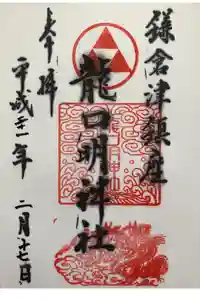 鎌倉津鎮座
龍口明神社
奉拝
平成廿一年
二月十七日